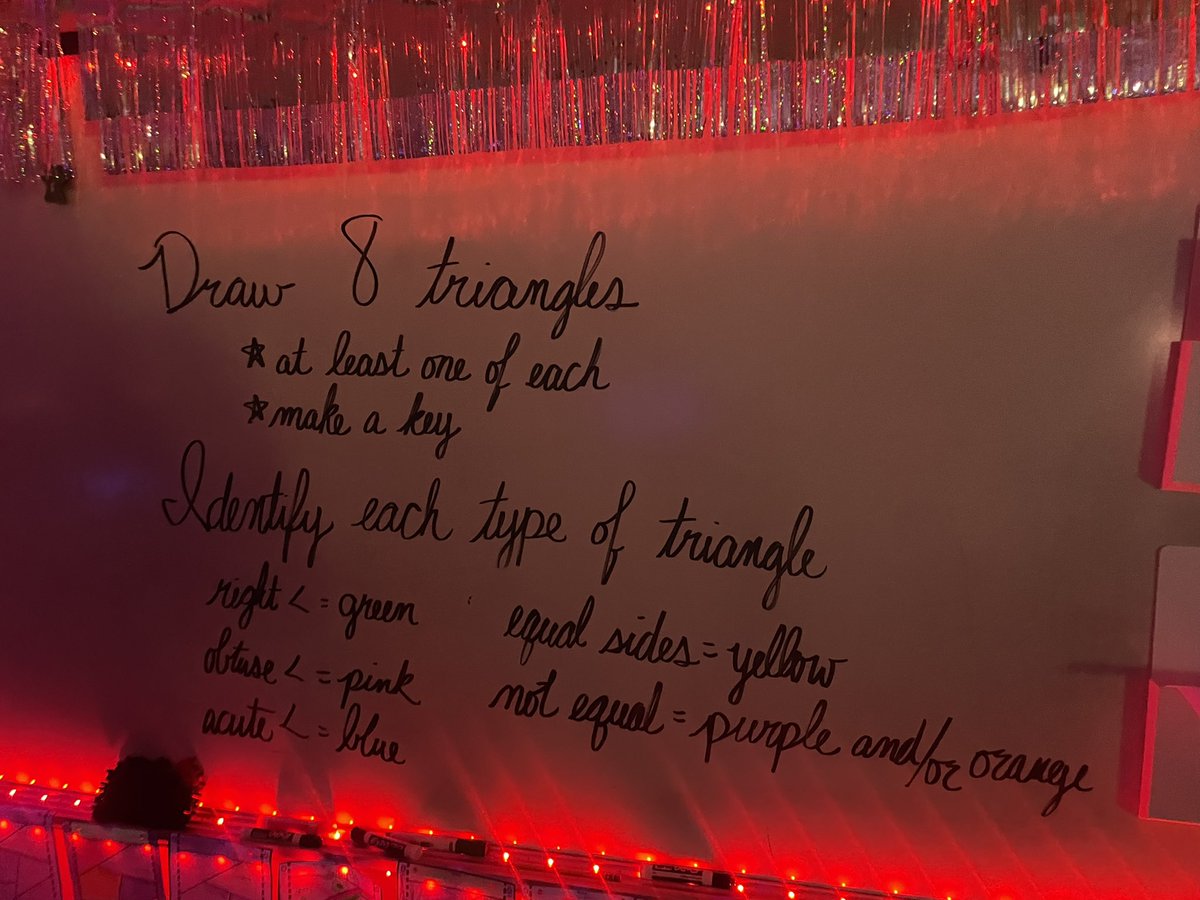 Draw 8 triangles
* at least one of each
* make a key
Identify each type of triangle
right < = green
obtuse < = pink
acute < = blue
equal sides = yellow
not equal = purple and/or orange